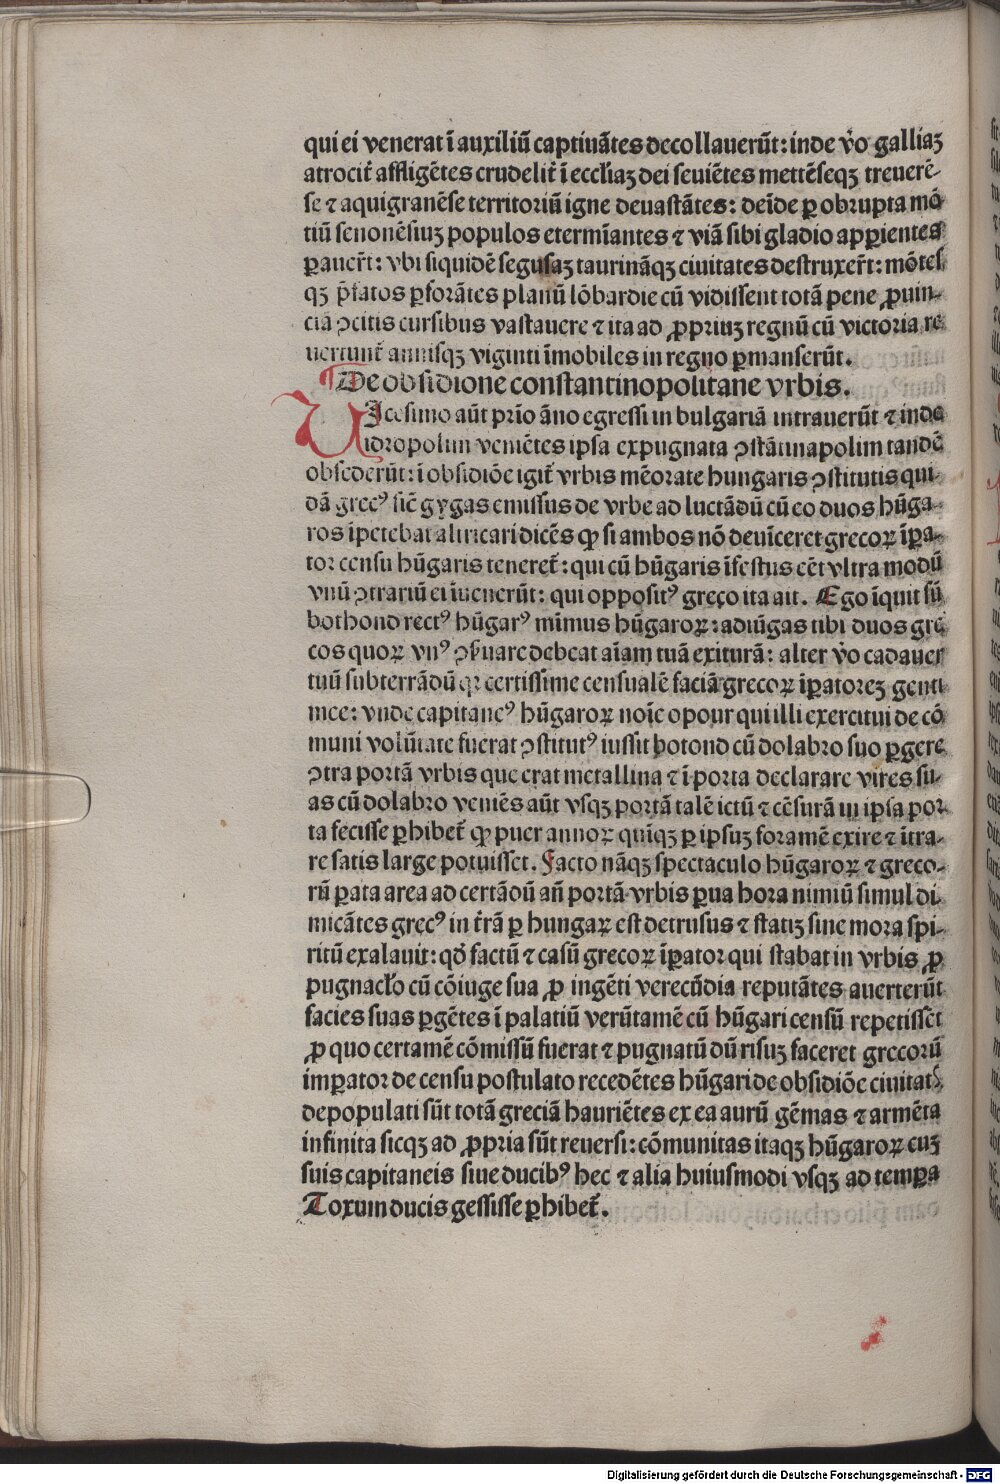 qui ei venerat ī auxiliū captiuātes decollauerūt: inde v̓o galliaꝫ
atrocit᷑ affligētes crudelit᷑ ī eccłiaꝫ dei seuiētes mettēseqꝫ treuerē-
se ⁊ aquigranēse territoriū igne deuastātes: deīde ꝑ obrupta mō
tiū senonēsiuꝫ populos etermīantes ⁊ viā sibi gladio apꝑientes
ꝑauer̄t: vbi siquidē segusaꝫ taurināqꝫ ciuitates destruxer̄t: mōtes
qꝫ p̄fatos ꝑforātes planū lōbardie cū vidissent totā pene ꝓuin-
ciā ꝯcitis cursibus vastauere ⁊ ita ad ꝓpriuꝫ regnū cū victoria re
uertunt᷑ annisqꝫ viginti īmobiles in regno ꝑmanserūt.
De obsidione constantinopolitane vrbis.
UIcesimo aūt prīo āno egressi in bulgariā intrauerūt ⁊ inde
idropolim veniētes ipsa expugnata ꝯstātinapolim tandē
obsederūt: ī obsidiōe igit᷑ vrbis mēorate hungaris ꝯstitutis qui-
dā grecꝰ sic̄ gygas emissus de vrbe ad luctādū cū eo duos hūga-
ros īpetebat altricari dicēs ꝙ si ambos nō deuīceret grecoꝝ īꝑa-
tor censu hūgaris teneret᷑: qui cū hūgaris īfestus eēt vltra modū
vnū ꝯtrariū ei īuenerūt: qui oppositꝰ greço ita ait. Ego īquit sū
bothond rectꝰ hūgarꝰ mīmus hūgaroꝝ: adiūgas tibi duos gre
cos quoꝝ vnꝰ ꝯẜuare debeat aīam tuā exiturā: alter v̓o cadauer
tuū subterrādū qꝛ certissime censualē faciā grecoꝝ īꝑatoreꝫ genti
mee: vnde capitaneꝰ hūgaroꝝ noīe opour qui illi exercitui de cō
muni volūtate fuerat ꝯstitutꝰ iussit botond cū dolabro suo ꝑgere
ꝯtra portā vrbis que erat metallina ⁊ ī porta declarare vires su-
as cū dolabro veniēs aūt vsqꝫ portā talē ictū ⁊ cēsurā in ipsa por
ta fecisse ꝑhibet᷑ ꝙ puer annoꝝ quīqꝫ ꝑ ipsuꝫ foramē exire ⁊ ītra-
re satis large potuisset. Facto nāqꝫ spectaculo hūgaroꝝ ⁊ greco-
rū ꝑata area ad certādū an̄ portā vrbis ꝑua hora nimiū simul di
micātes grecꝰ in t̄rā ꝑ hungaꝝ est detrusus ⁊ statiꝫ sine mora spi-
ritū exalauit: qd̓ factū ⁊ casū grecoꝝ īꝑator qui stabat in vrbis ꝓ
pugnacło cū cōiuge sua ꝓ ingēti verecūdia reputātes auerterūt
facies suas ꝑgētes ī palatiū verūtamē cū hūgari censū repetissēt
ꝓ quo certamē cōmissū fuerat ⁊ pugnatū dū risuꝫ faceret grecorū
imꝑator de censu postulato recedētes hūgari de obsidiōe ciuitatꝭ
depopulati sūt totā greciā hauriētes ex ea aurū gēmas ⁊ armēta
infinita sicqꝫ ad ꝓpria sūt reuersi: cōmunitas itaqꝫ hūgaroꝝ cuꝫ
suis capitaneis siue ducibꝰ hec ⁊ alia huiusmodi vsqꝫ ad temꝑa
Toxum ducis gessisse ꝑhibet᷑.
Digitalisierung gefördert durch die Deutsche Forschungsgemeinschaft - DFG